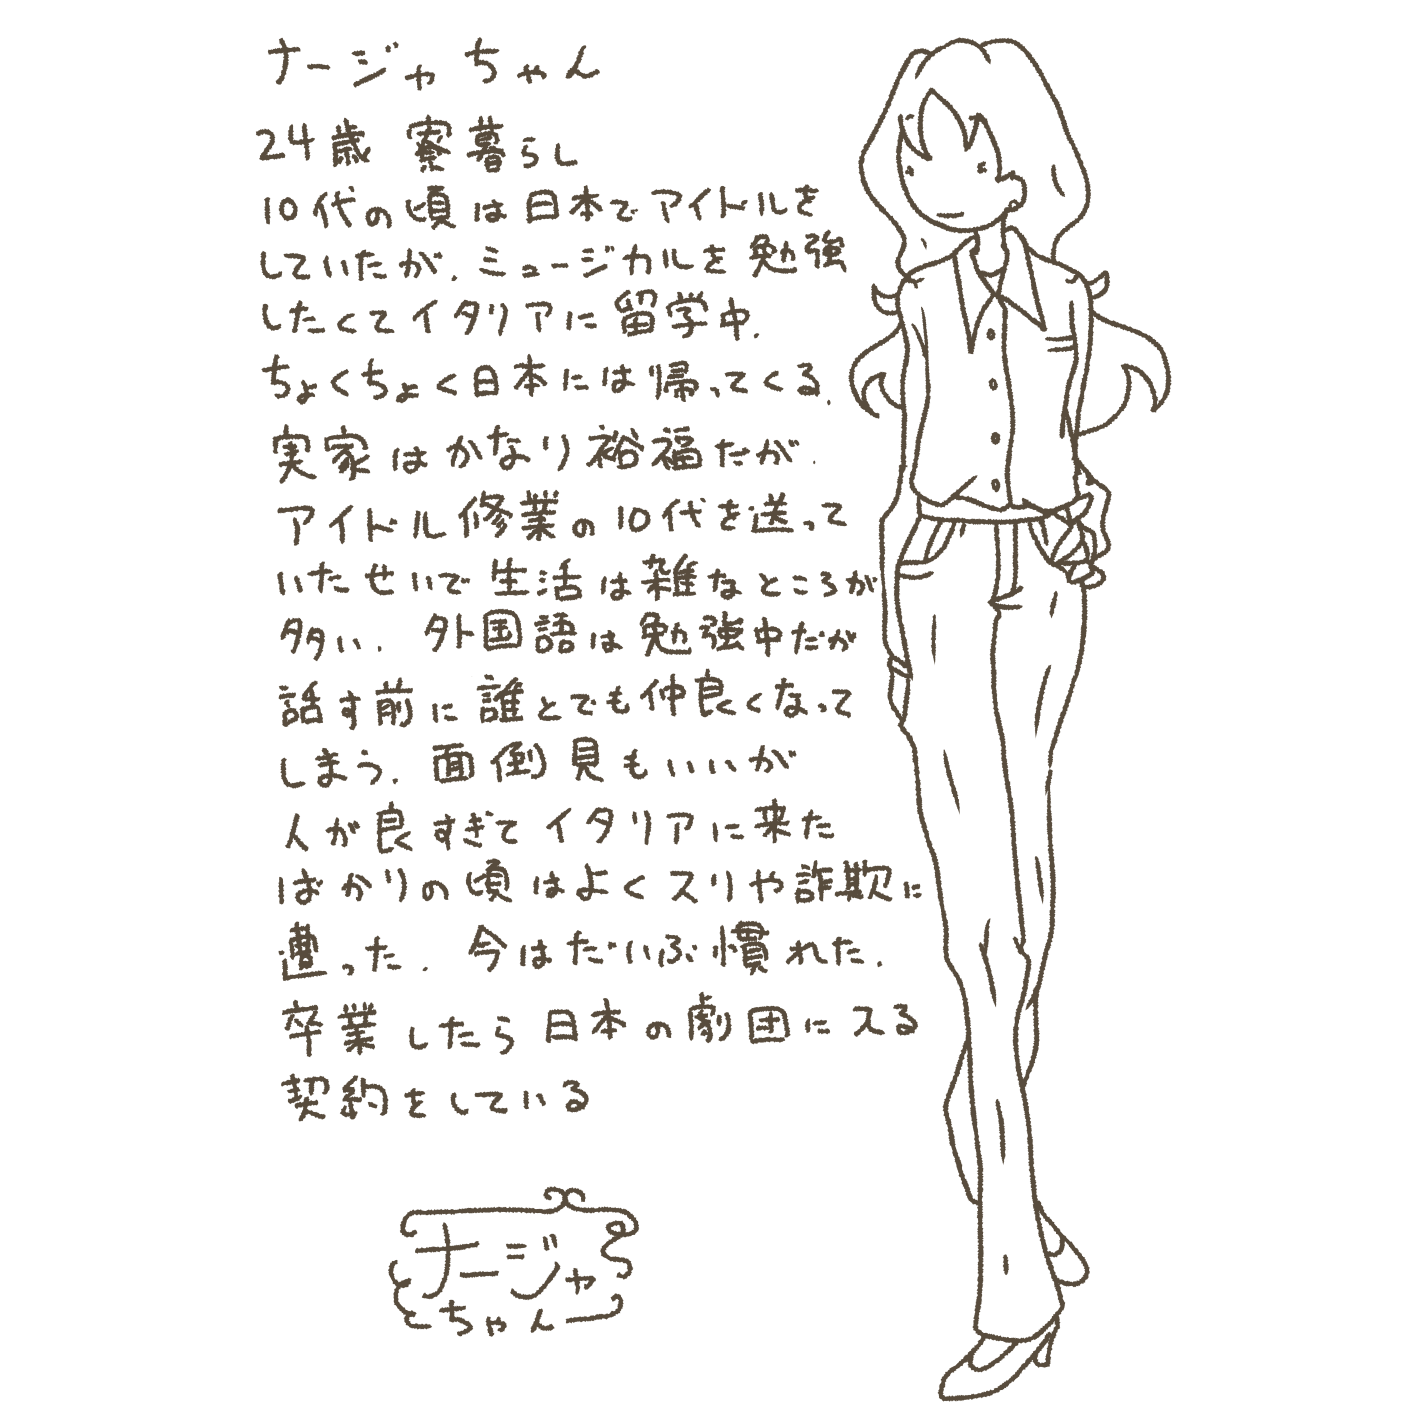 ナージャちゃん
24歳 寮暮らし
10代の頃は日本でアイドルを
していたが、ミュージカルを勉強
したくてイタリアに留学中。
ちょくちょく日本には帰ってくる。
実家はかなり裕福だが、
アイドル修業の10代を送って
いたせいで生活は雑なところが
多い。外国語は勉強中だが
話す前に誰とでも仲良くなって
しまう。面倒見もいいが
人が良すぎてイタリアに来た
ばかりの頃はよくスリや詐欺に
遭った。今はだいぶ慣れた。
卒業したら日本の劇団に入る
契約をしている
ナージャ
ちゃん